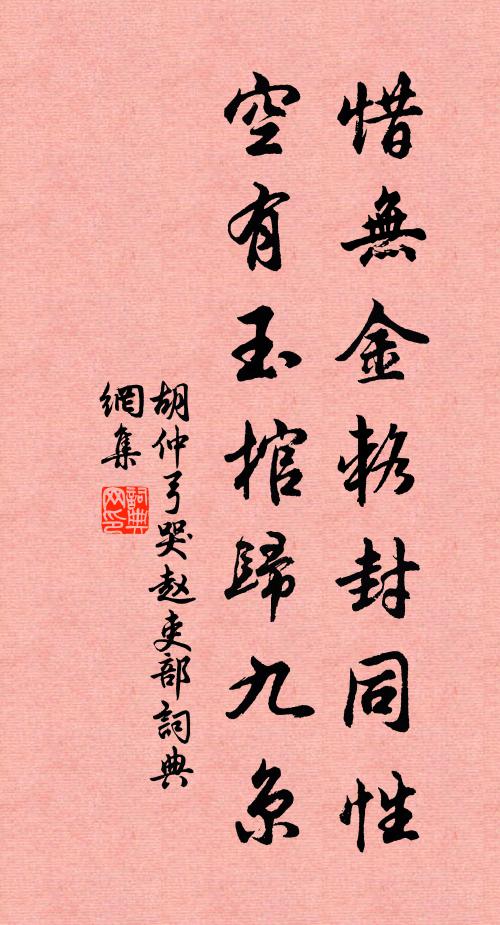 惜無金輅封同性
空有玉棺歸九京
胡仲弓哭赵吏部詞典
網集
詞典网印